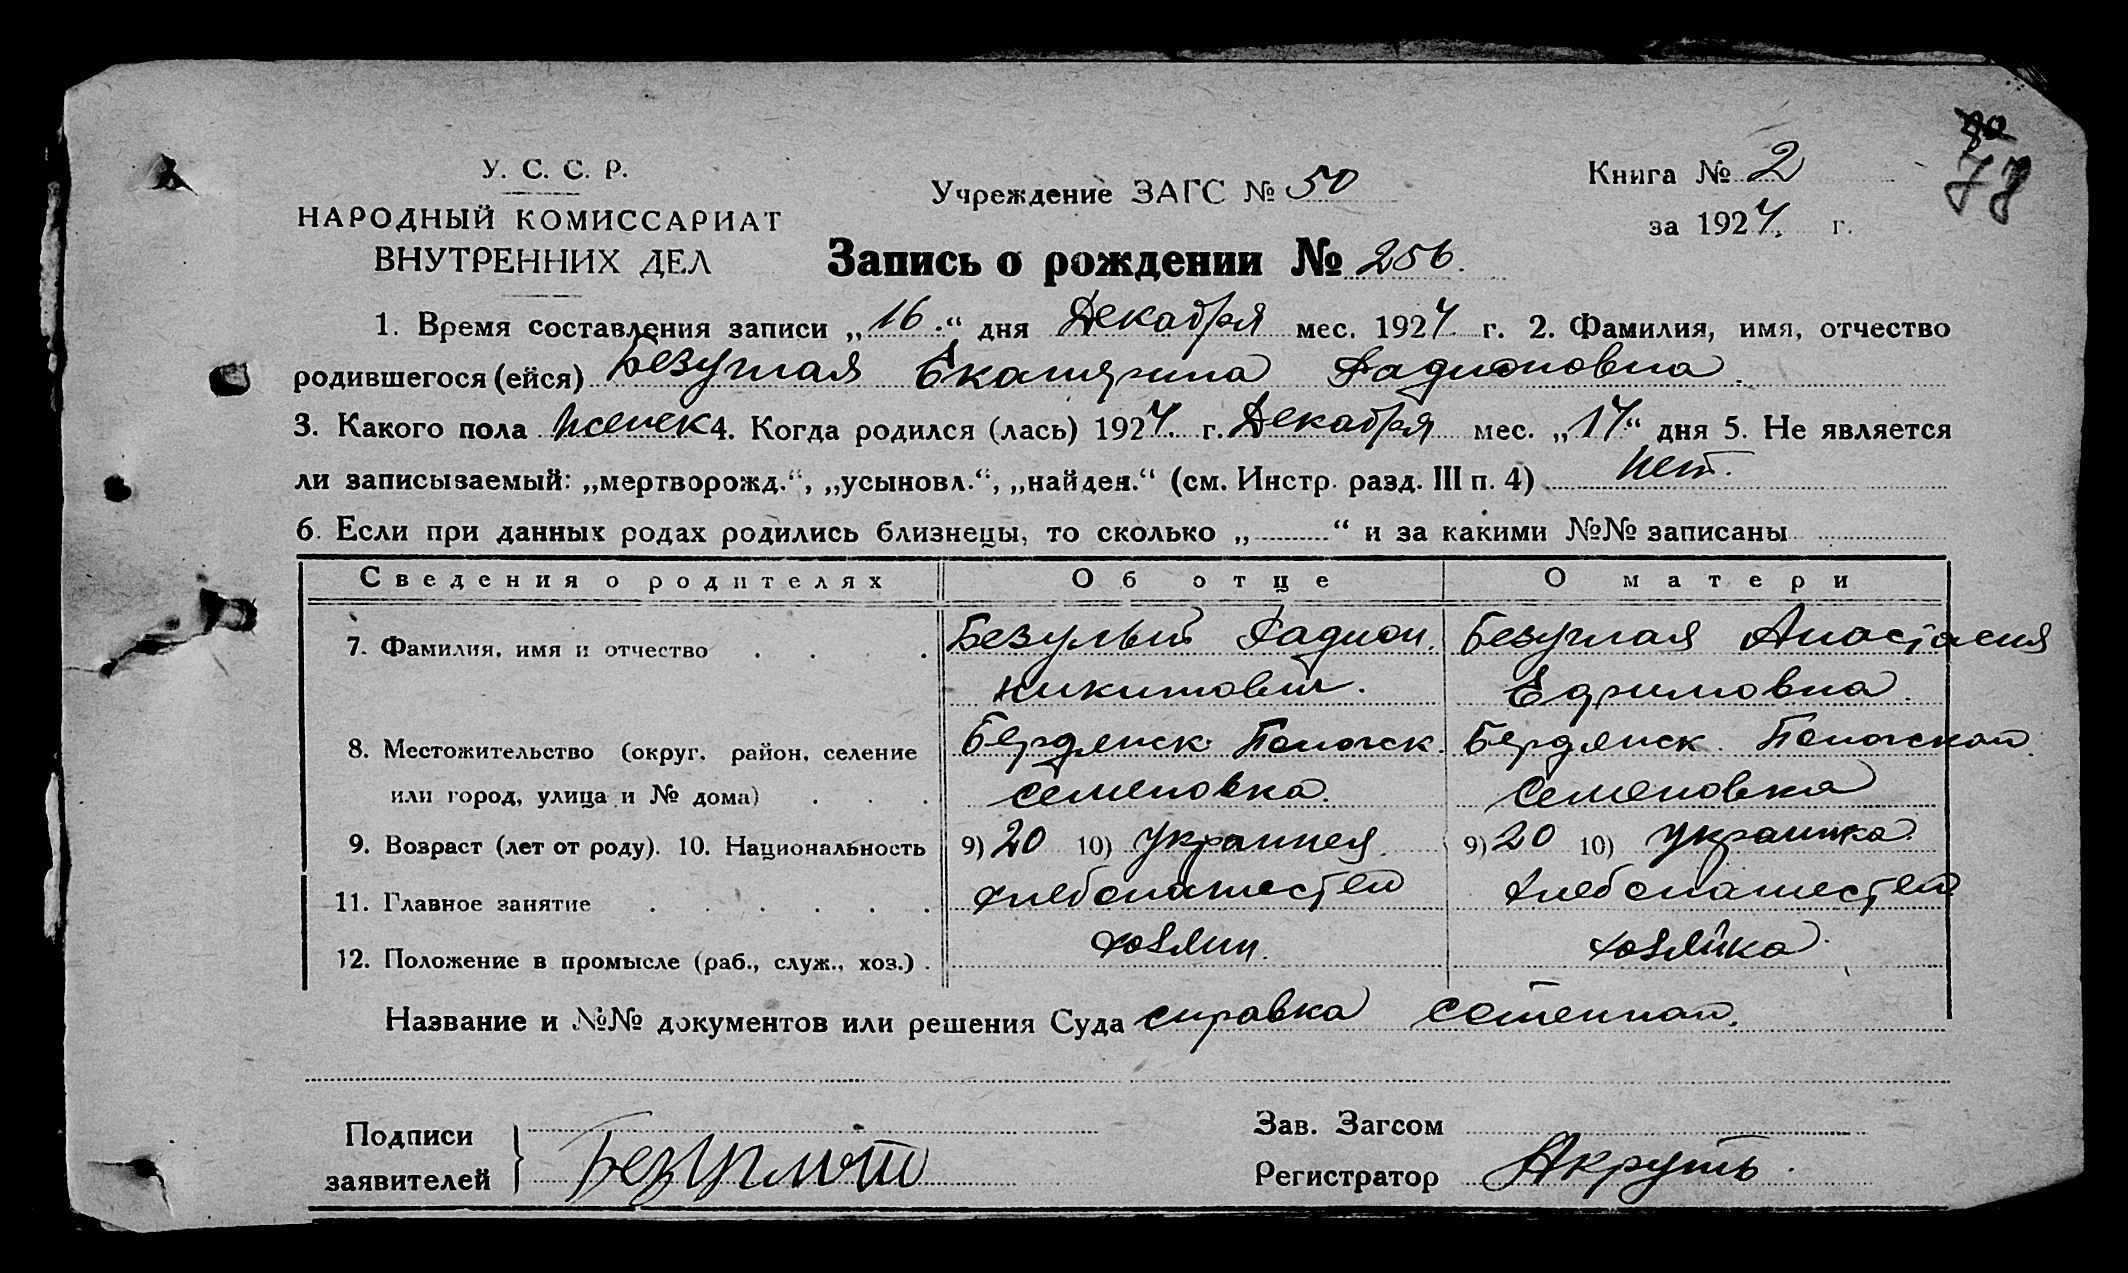 У. С. С. Р.
НАРОДНЫЙ КОМИССАРИАТ
ВНУТРЕННИХ ДЕЛ
Учреждение ЗАГС № 50
Книга № 2
за 1927 г.
78
Запись о рождении № 256.
1. Время составления записи „16.“ дня Декабря мес. 1927 г. 2. Фамилия, имя, отчество
родившегося (ейся) Безуглая Екатерина Радионовна
3. Какого пола женск 4. Когда родился (лась) 1927 г. Декабря мес. „14“ дня 5. Не является
ли записываемый: „мертворожд.“, „усыновл.“, „найден.“ (см. Инстр. разд. III п. 4) нет.
6. Если при данных родах родились близнецы, то сколько „ “ и за какими №№ записаны
Сведения о родителях Об отце О матери
7. Фамилия, имя и отчество Безуглый Радион Безуглая Анастасия
Никитович. Ефимовна.
8. Местожительство (округ, район, селение Бердянск Пологск. Бердянск Пологский
или город, улица и № дома) Семеновка. Семеновка
9. Возраст (лет от роду). 10. Национальность 9) 20 10) Украинец 9) 20 10) Украинка
11. Главное занятие хлебопашество хлебопашество
12. Положение в промысле (раб., служ., хоз.) хозяин. хозяйка
Название и №№ документов или решения Суда справка сотенного.
Подписи
заявителей
Безуглый
Зав. Загсом
Регистратор